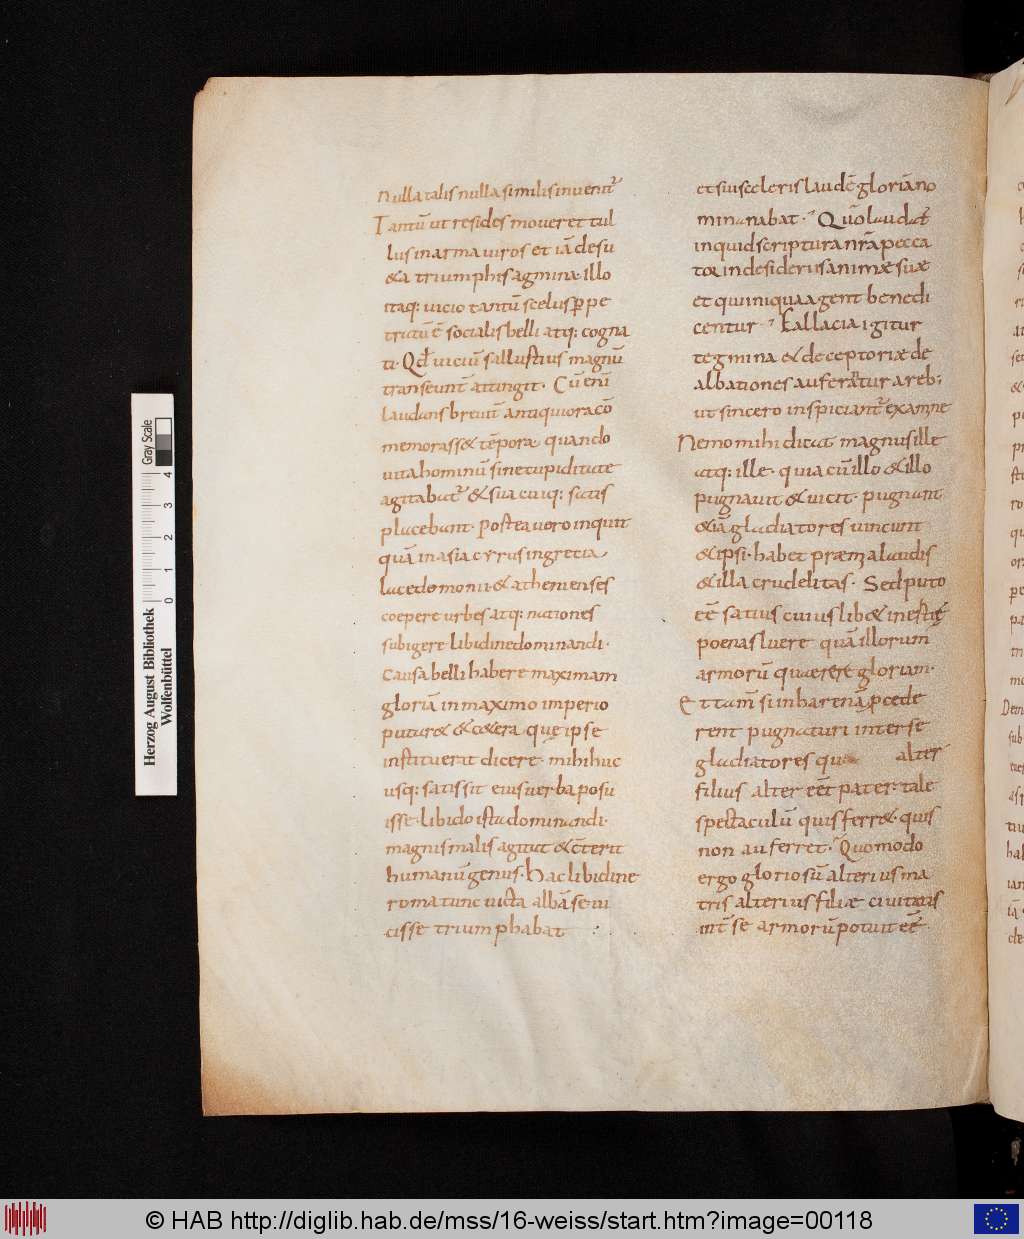 nulla talis nulla similis inuenit᷑
Tantū ut resides moueret tul
lus in arma uiros et iā desu
&a triumphis agmina· illo
itaq: uicio tantū scelus ꝑpe
tratū ē socialis belli atq: cogna
ti· Qd̄ uiciū sallustius magnū
transeunt̄ attingit· Cū enī
laudans breuit̄ antiquiora cō
memorass& tēpora quando
uita hominū sine cupiditate
agitabat᷑ & sua cuiq: satis
placebant· postea uero inquit
quā in asia cyrrus in gretia
lacedomonii & athenienses
coepere urbes atq: nationes
subigere· libidinē dominandi·
causā belli habere maximam
gloriā in maximo imperio
putare& & c&era quę ipse
instituerat dicere· mihi huc
usq: satis sit eius uerba posu
isse· libido ista dominandi·
magnis malis agitat & cōterit
humanū genus· Hac libidine
roma tunc uicta albā se ui
cisse triumphabat
et sui sceleris laudē gloriā no
minabat· Qūo laudat᷑
inquid scriptura nr̄a pecca
tor in desideriis animæ suæ
et qui iniqua agent benedi
centur· Fallacia igitur
tegmina & deceptoriæ de
albationes auferantur a reb;
ut sincero inspiciant᷑ examine
Nemo mihi dicat magnus ille
atq: ille· quia cū illo & illo
pugnauit & uicit· pugnant
& iā gladiatores uincunt
& ipsi· hab& præmia laudis
& illa crudelitas· Sed puto
eē satius cuiuslib& inestiē
poenas luere quā illorum
armorū quaerere gloriam·
Et tam̄ si in harena ꝓcede
rent pugnaturi inter se
gladiatores qu alter
filius alter eēt pater· tale
spectaculū quis ferr&· quis
non auferret· Quomodo
ergo gloriosū alterius ma
tris alterius filiæ ciuitatis
int̄ se armorū potuit eē·
Herzog August Bibliothek
Wolfenbüttel
Gray Scale
0 1 2 3 4
© HAB http://diglib.hab.de/mss/16-weiss/start.htm?image=00118